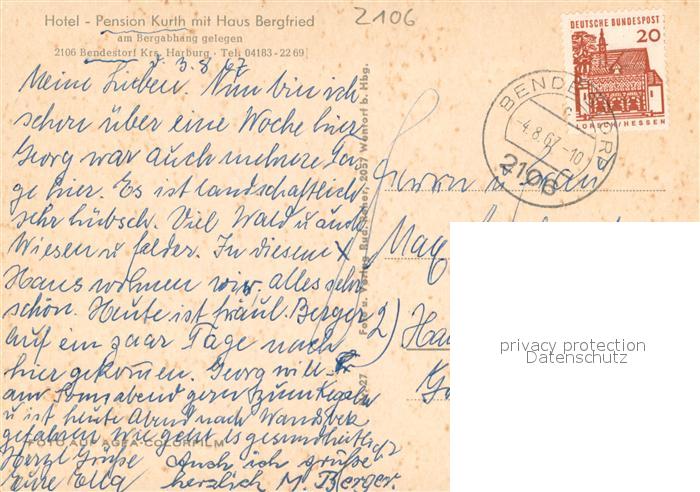 2106
Hotel - Pension Kurth mit Haus Bergfried
am Bergabhang gelegen
2106 Bendestorf Krs. Harburg · Tel. 04183-2269
d. 3.8.67
Meine Lieben. Nun bin ich
schon über eine Woche hier
Georg war auch mehrere Ta-
ge hier. Es ist landschaftlich
sehr hübsch. Viel Wald u auch
Wiesen u felder. In diesem x
Haus wohnen wir. alles sehr
schön. Heute ist fräul. Berger
auf ein paar Tage nach
hier gekommen. Georg will
am Sonnabend gern zum Kegeln
u ist heute Abend nach Wandsbek
gefahren wie geht es gesundheitlich?
Herzl Grüße
Eure Ella
Auch ich grüße
herzlich M. Berger.
FOTO AUF AGFA-COLORFILM
Foto u. Verlag Rud. 2057 Wentorf b. Hbg.
27
DEUTSCHE BUNDESPOST
20
LORSCH/HESSEN
BENDESTORF
-4.8.67-10
2106
Herrn u.
2) Ha
privacy protection
Datenschutz